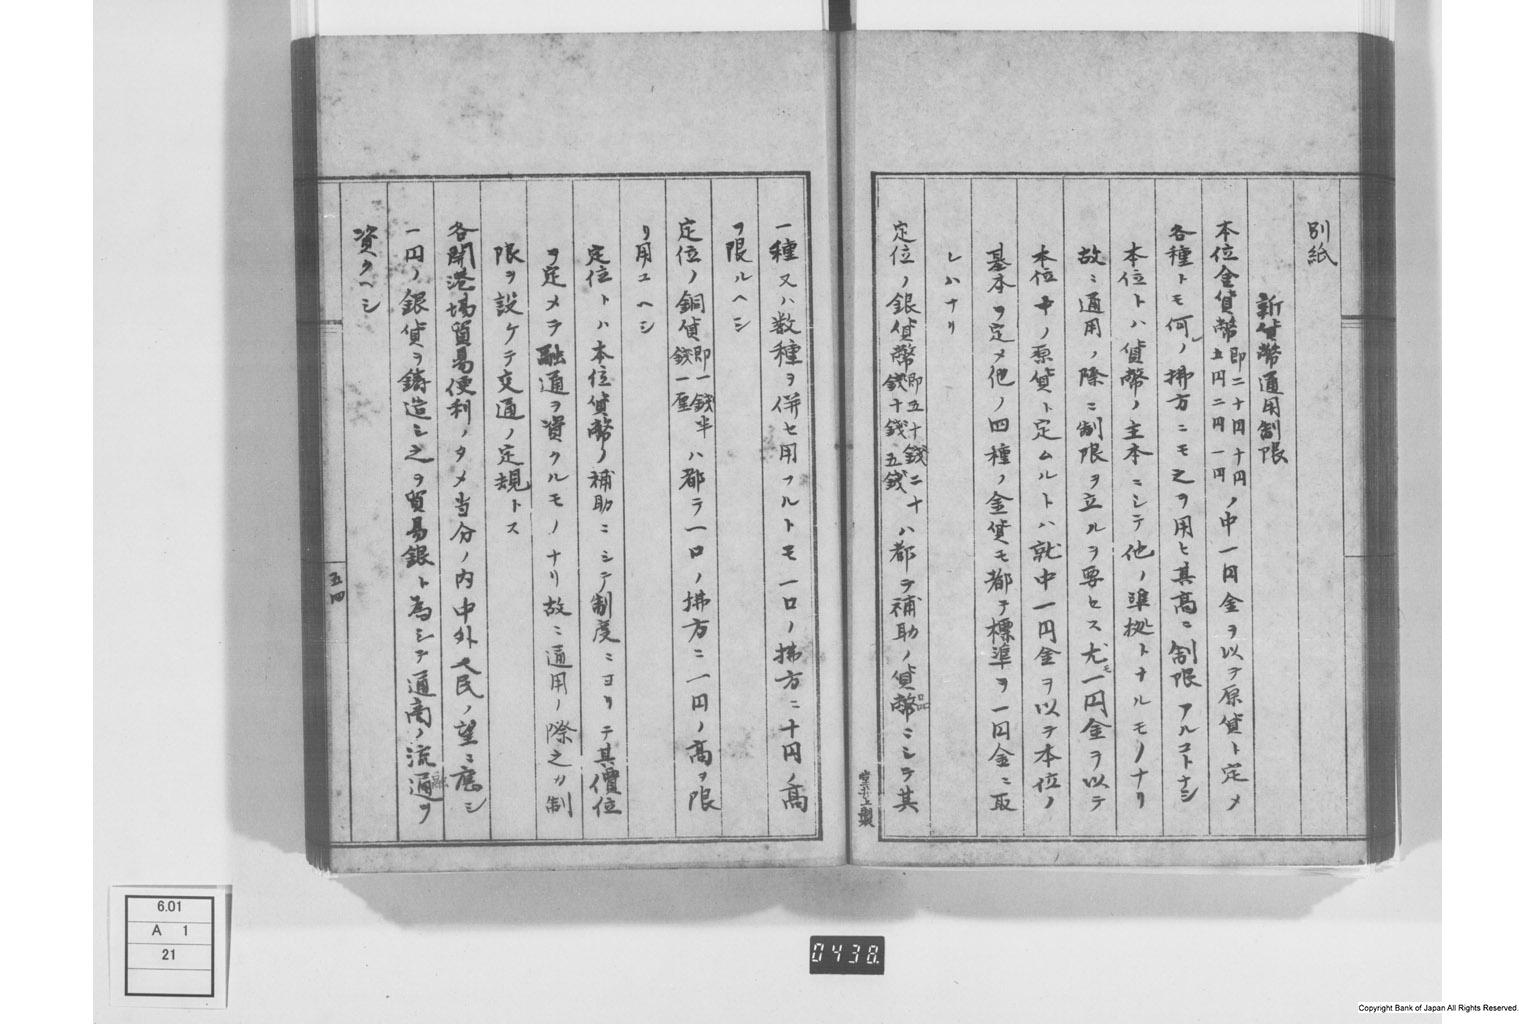 別紙
新貨幣通用制限
本位金貨幣即二十円十円五円二円一円ノ中一円金ヲ以テ原貨ト定メ
各種トモ何ノ拂方ニモ之ヲ用ヒ其高ニ制限アルコトナシ
本位トハ貨幣ノ主本ニシテ他ノ準拠トナルモノナリ
故ニ通用ノ際ニ制限ヲ立ルヲ要セス尤モ一円金ヲ以テ
本位中ノ原貨ト定ムルトハ就中一円金ヲ以テ本位ノ
基本ヲ定メ他ノ四種ノ金貨モ都テ標準ヲ一円金ニ取
レハナリ
定位ノ銀貨幣即五十銭二十銭十銭五銭ハ都テ補助ノ貨幣ニシテ其
堂井上製
一種又ハ数種ヲ併セ用フルトモ一口ノ拂方ニ十円ノ高
ヲ限ルヘシ
定位ノ銅貨即一銭半銭一厘ハ都テ一口ノ拂方ニ一円ノ高ヲ限
リ用ユヘシ
定位トハ本位貨幣ノ補助ニシテ制度ニヨリテ其價位
ヲ定メテ融通ヲ資クルモノナリ故ニ通用ノ際之カ制
限ヲ設ケテ交通ノ定規トス
各開港場貿易便利ノタメ当分ノ内中外人民ノ望ニ應シ
一円ノ銀貨ヲ鋳造シ之ヲ貿易銀ト為シテ通商ノ流通ヲ
資クヘシ
五四
6.01
A 1
21
0438
Copyright Bank of Japan All Rights Reserved.